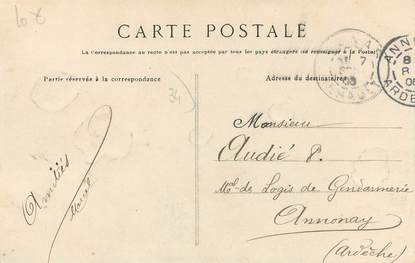 10 €
CARTE POSTALE
La correspondance au recto n'est pas acceptée par tous les pays étrangers (se renseigner à la Poste)
Partie réservée à la correspondance
Adresse du destinataire
34
7
08
HÉRAULT
ANNO
8
R
08
ARDE
Monsieur
Audié P.
Mal de Logis de Gendarmerie
Annonay
(Ardèche)
Amitiés
Marcel